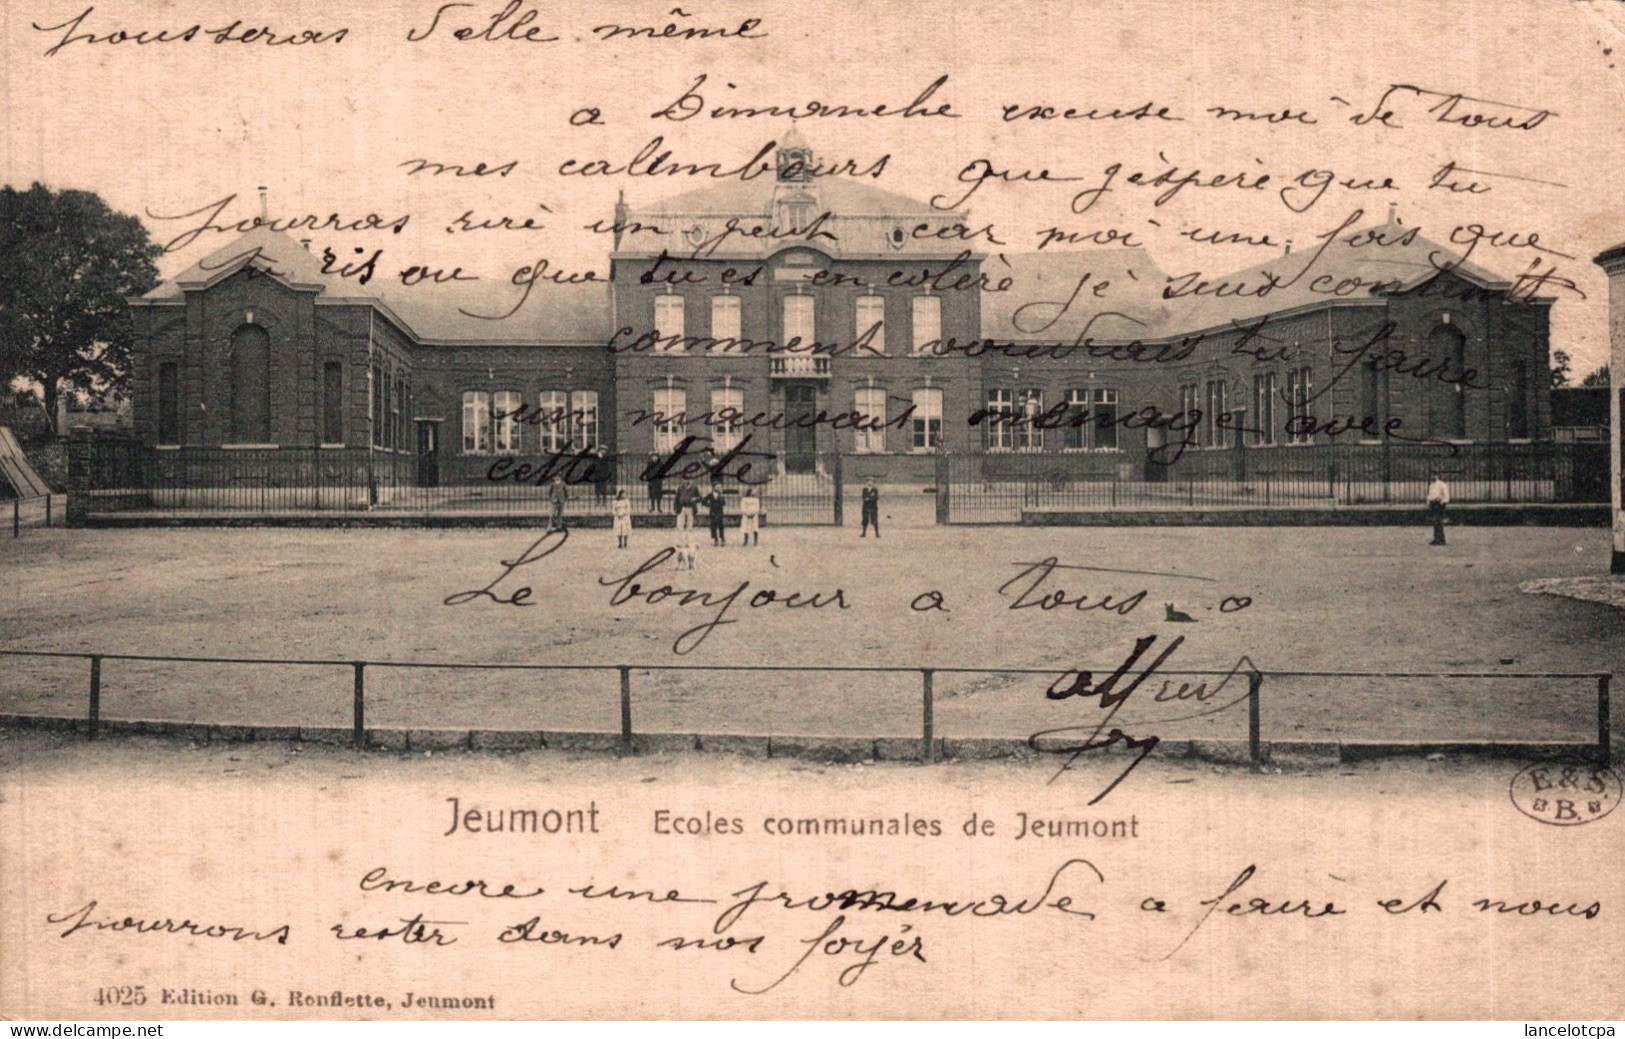 pousseras d'elle même
a Dimanche excuse moi de tous
mes calembours que j'éspère que tu
pourras rire un peut car moi une fois que
tu ris ou que tu es en colère je suis content
comment voudrais tu faire
un mauvais ménage avec
cette tête
Le bonjour a tous
Alfred
Jeumont Ecoles communales de Jeumont
E. & S.
B.
encore une promenade a faire et nous
pourrons rester dans nos foyér
4025 Edition G. Ronflette, Jeumont
delcampe.net
lancelotcpa